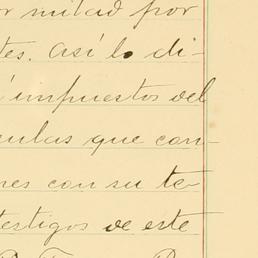 mitad por
tes. Así lo di-
impuestos del
culas que con-
res con su te-
testigos de este